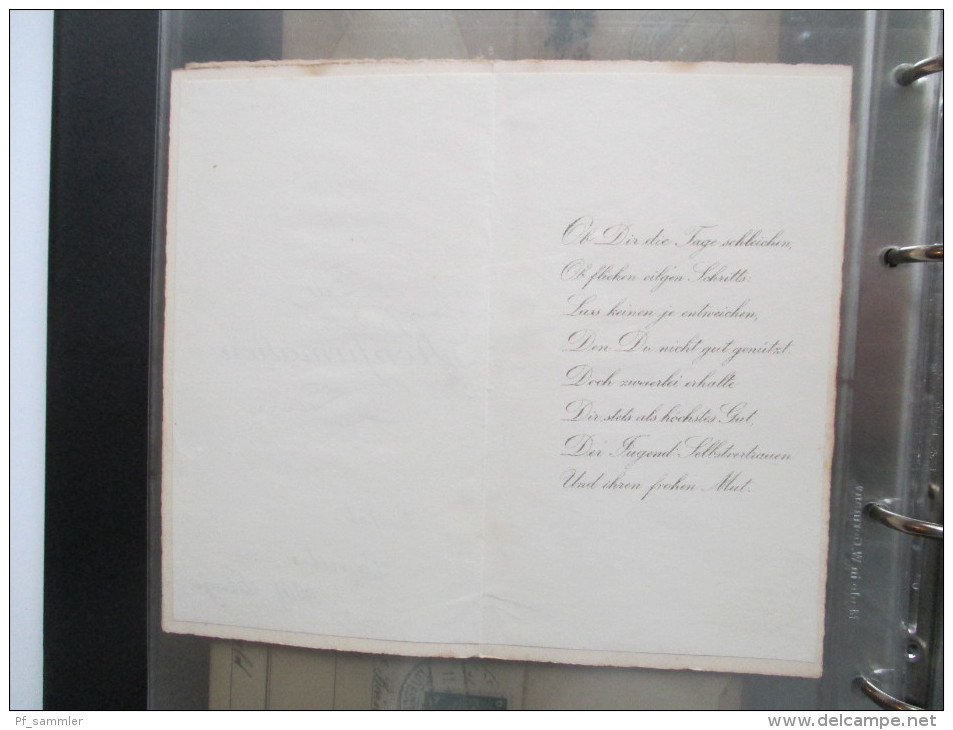 Ob Dir die Tage schleichen,
Ob fliehen eil'gen Schritts:
Lass keinen je entweichen,
Den Du nicht gut genützt.
Doch zweierlei erhalte
Dir stets als höchstes Gut,
Der Jugend Selbstvertrauen
Und ihren frohen Mut.
Pf_sammler
www.delcampe.net